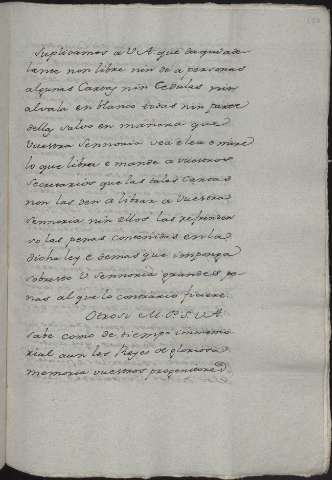 Suplicamos a V A que daqui ade
lante non libre nin dé a personas
algunas Cartas nin Cedulas nin
alvala en blanco todas nin parte
dellas salvo en manera que
Vuestra Sennoria vea e lea e mire
lo que libra e mande a vuestros
Secretarios que las tales Cartas
non las den a librar a Vuestra
Sennoria nin ellos las refrenden
so las penas contenidas en la
dicha ley e demas que imponga
sobresto V Sennoria grandes pe
nas al que lo contrario ficiere
Otrosi M. P. S. V A
sabe como de tiempo inmemo
rial aun los Reyes de gloriosa
memoria vuestros progenitores